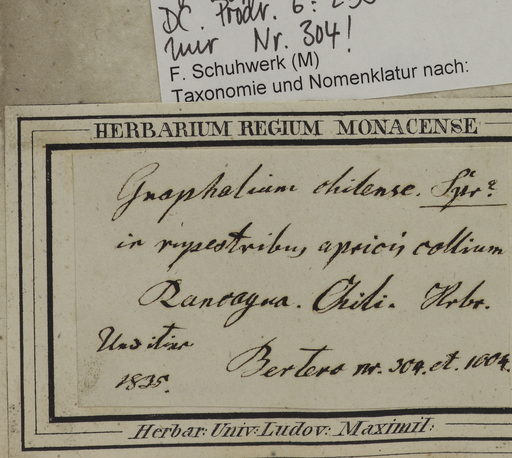 DC. Prodr. 6: 23
Nr. 304!
F. Schuhwerk (M)
Taxonomie und Nomenklatur nach:
HERBARIUM REGIUM MONACENSE
Gnaphalium chilense. Spr?
in rupestribus apricis collium
Rancagua. Chili. Hrbr.
Un. itin.
1835. Bertero nr. 304. et. 1004.
Herbar: Univ: Ludov: Maximil: